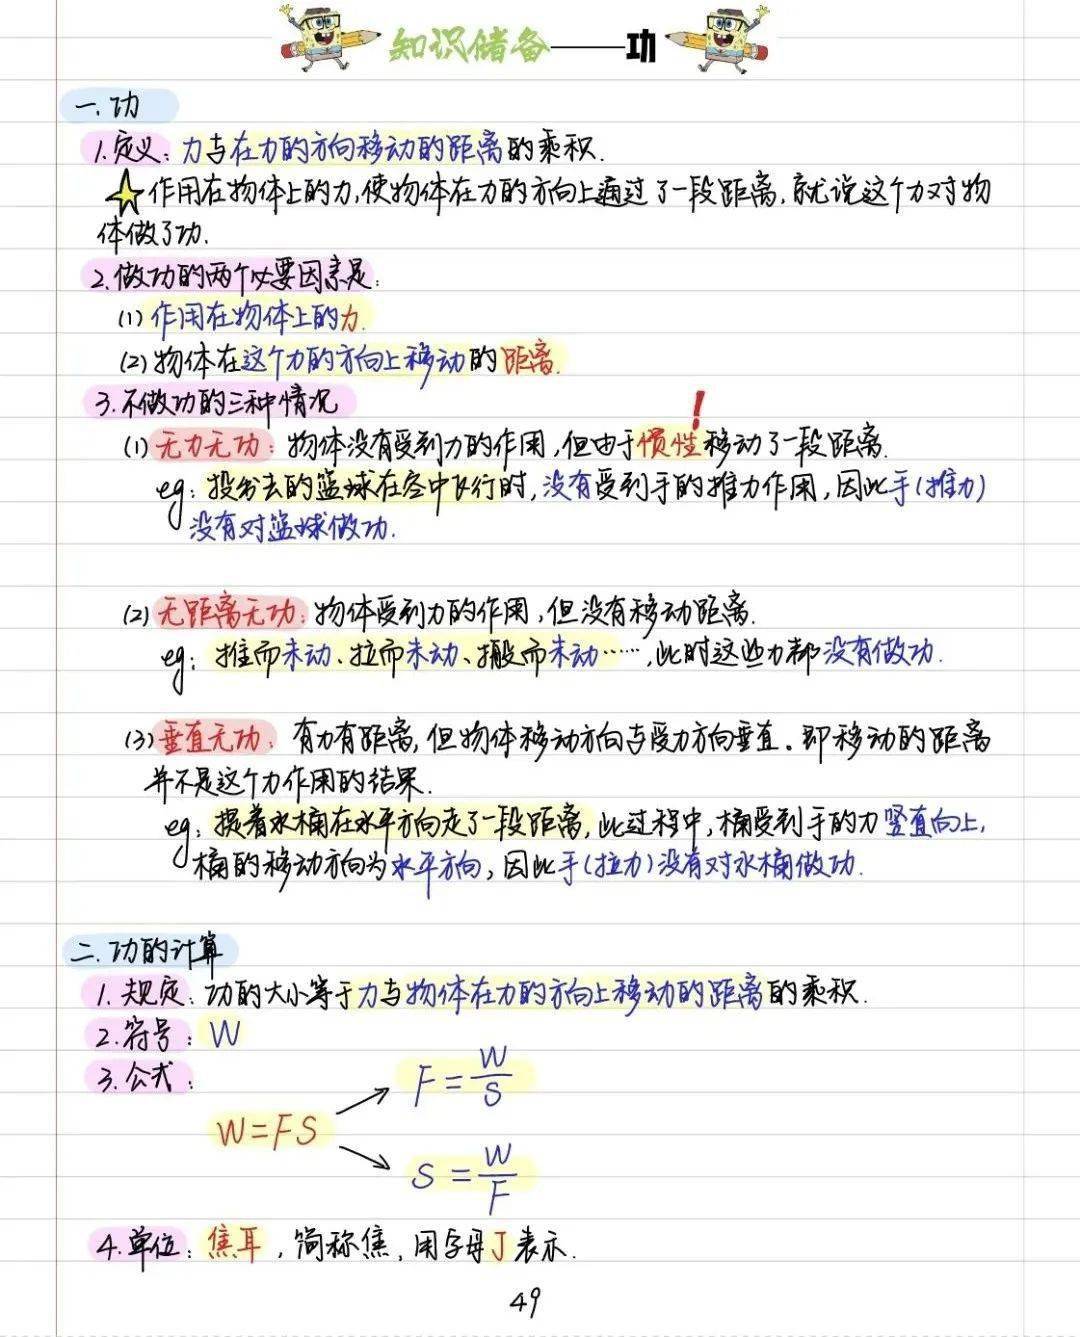 知识储备——功
一.功
1.定义:力与在力的方向移动的距离的乘积.
作用在物体上的力,使物体在力的方向上通过了一段距离,就说这个力对物
体做了功.
2.做功的两个必要因素是:
(1)作用在物体上的力.
(2)物体在这个力的方向上移动的距离.
3.不做功的三种情况
(1)无力无功:物体没有受到力的作用,但由于惯性移动了一段距离.
eg:投出去的篮球在空中飞行时,没有受到手的推力作用,因此手(推力)
没有对篮球做功.
(2)无距离无功:物体受到力的作用,但没有移动距离.
eg:推而未动、拉而未动、搬而未动……,此时这些力都没有做功.
(3)垂直无功:有力有距离,但物体移动方向与受力方向垂直。即移动的距离
并不是这个力作用的结果.
eg:提着水桶在水平方向走了一段距离,此过程中,桶受到手的力竖直向上,
桶的移动方向为水平方向,因此手(拉力)没有对水桶做功.
二.功的计算
1.规定:功的大小等于力与物体在力的方向上移动的距离的乘积.
2.符号:W
3.公式:
F=W/S
W=FS
S=W/F
4.单位:焦耳,简称焦,用字母J表示.
49